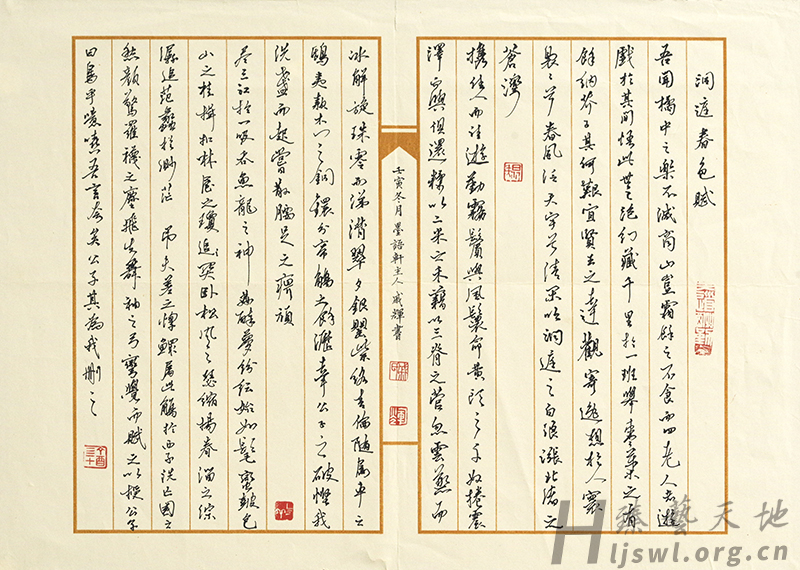 洞庭春色賦
吾聞橘中之樂不減商山豈霜餘之不食而四老人者遊
戲於其間悟此世之泡幻藏千里於一班舉棗葉之有
餘納芥子其何艱宜賢王之達觀寄逸想於人寰
裊々兮春風泛天宇兮清閑吹洞庭之白浪漲北渚之
蒼灣
攜佳人而往遊勤霧鬢與風鬟命黃頭之千奴捲震
澤與俱還糅以二米之禾藉以三脊之菅忽雲蒸而
壬寅冬月墨語軒主人成輝書
冰解旋珠零而涕潸翠勺銀罌紫絡青倫隨屬車之
鴟夷款木門之銅鐶分帝觴之餘瀝幸公子之破慳我
洗盞而起嘗散腰足之痹頑
盡三江於一吸吞魚龍之神姦醉夢紛紜始如髦蠻鼓包
山之桂楫扣林屋之瓊關臥松風之瑟縮揭春溜之淙
潺追范蠡於渺茫吊夫差之惸鰥屬此觴於西子洗亡國之
愁顏驚羅襪之塵飛失舞袖之弓彎覺而賦之以授公子
曰烏乎噫嘻吾言夸矣公子其為我刪之
臻藝天地
Hljswl.org.cn